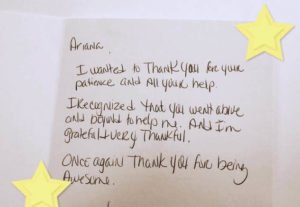 Ariana,
I wanted to Thank you for your
patience and All your help.
I Recognized that you went above
and beyond to help me. And I'm
grateful & very Thankful.
Once again Thank you for being
Awesome.